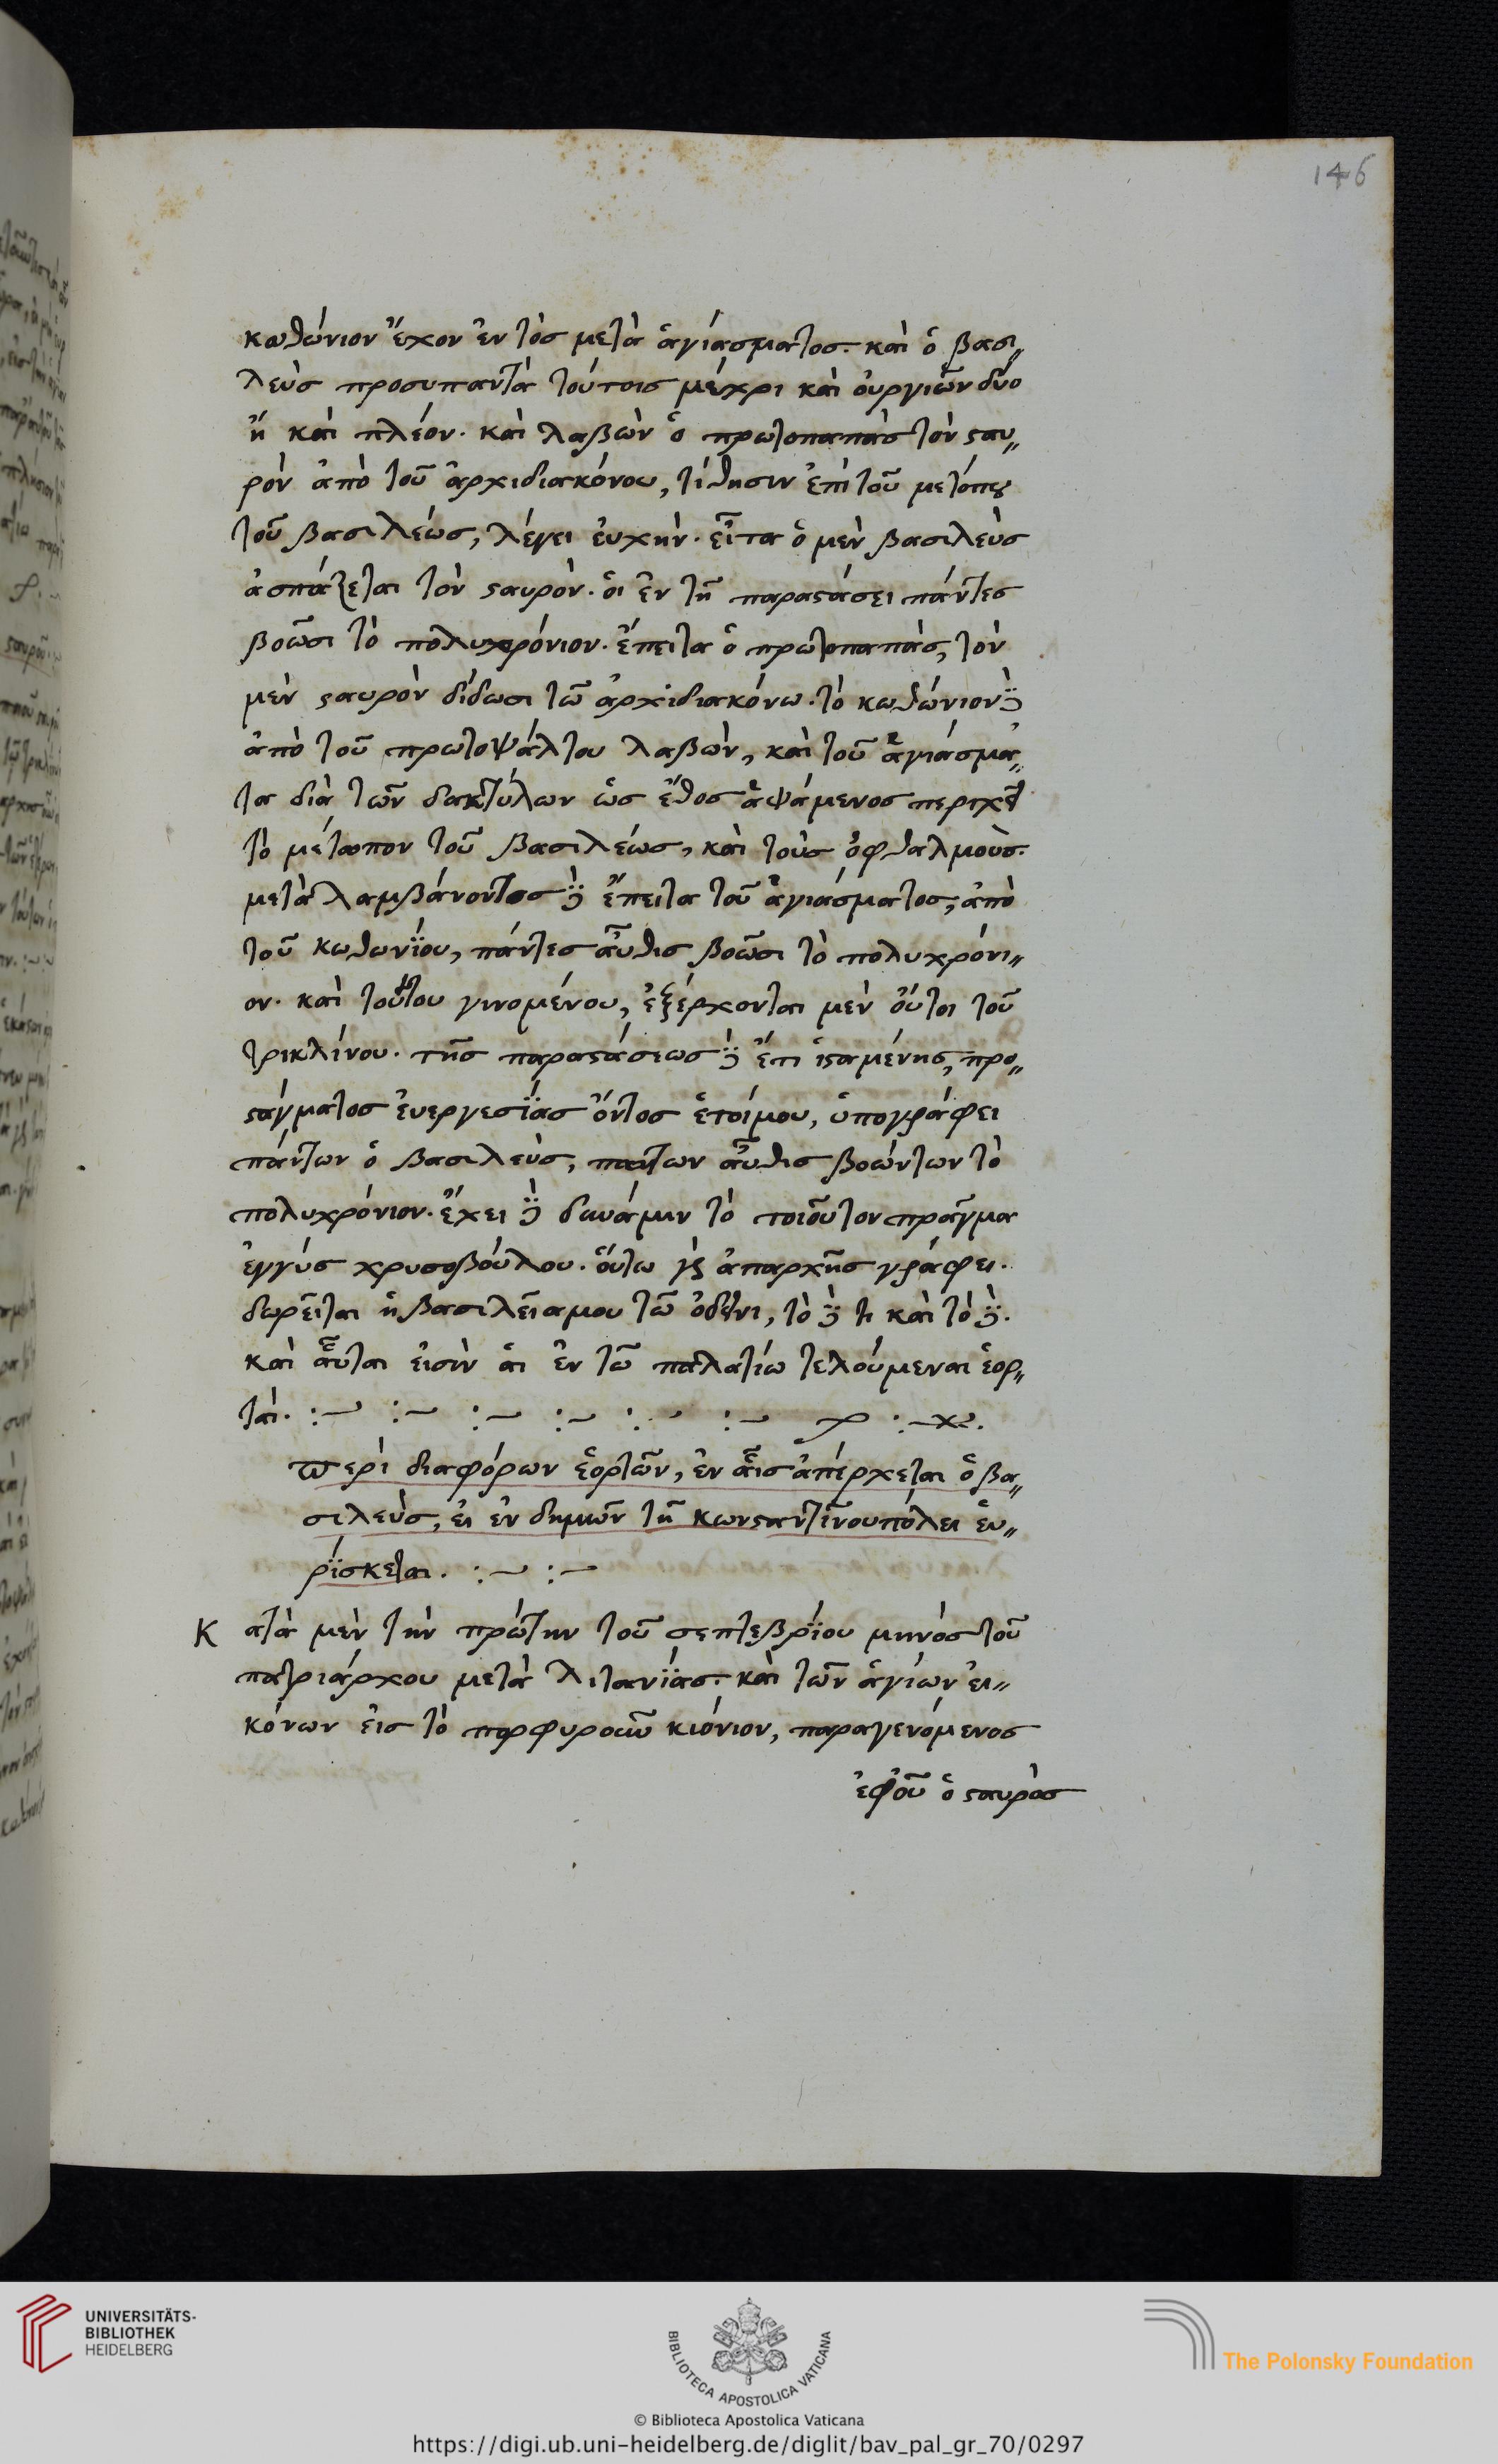 146
κωθώνιον ἔχον ἐντὸς μετὰ ἁγιάσματος. καὶ ὁ βασι„
λεὺς προσυπαντᾶ τούτοις μέχρι καὶ οὐργιῶν δύο
ἢ καὶ πλέον. καὶ λαβὼν ὁ πρωτοπαπὰς τὸν ϛαυ„
ρὸν ἀπὸ τοῦ ἀρχιδιακόνου, τίθησιν ἐπὶ τοῦ μετόπου
τοῦ βασιλέως, λέγει εὐχὴν. εἶτα ὁ μὲν βασιλεὺς
ἀσπάζεται τὸν ϛαυρὸν. οἱ ἐν τῆ παραϛάσει πάντες
βοῶσι τὸ πολυχρόνιον. ἔπειτα ὁ πρωτοπαπὰς, τὸν
μὲν ϛαυρὸν δίδωσι τῶ ἀρχιδιακόνω. τὸ κωθώνιον δὲ
ἀπὸ τοῦ πρωτοψάλτου λαβὼν, καὶ τοῦ ἁγιάσμα„
τα διὰ τῶν δακτύλων ὡς ἔθος ἁψάμενος περιχεῖ
τὸ μέτωπον τοῦ βασιλέως, καὶ τοὺς ὀφθαλμοὺς.
μετὰ λαμβάνοντος δὲ ἔπειτα τοῦ ἁγιάσματος, ἀπὸ
τοῦ κωθωνΐου, πάντες αὖθις βοῶσι τὸ πολυχρόνι„
ον. καὶ τούτου γινομένου, ἐξέρχονται μὲν οὗτοι τοῦ
τρικλίνου. τῆς παραϛάσεως δὲ ἔτι ἱϛαμένης, προ„
ϛάγματος εὐεργεσΐας ὄντος ἑτοίμου, ὑπογράφει
πάντων ὁ βασιλεὺς, παντων αὖθις βοώντων τὸ
πολυχρόνιον. ἔχει δὲ δυνάμιν τὸ τοιοῦτον πράγμα
ἐγγὺς χρυσοβούλου. οὕτω γὰρ ἀπαρχῆς γράφει.
δωρεῖται ἡ βασιλεία μου τῶ ὁδεῖνι, τὸ δὲ τι καὶ τὸ δὲ.
καὶ αὗται εἰσὶν αἱ ἐν τῶ παλατίω τελούμεναι ἑορ„
ταὶ.
Περὶ διαφόρων ἑορτῶν, ἐν αἷς ἀπέρχεται ὁ βα„
σιλεὺς, εἰ ἐν δημῶν τῆ κωνϛαντΐνουπόλει εὑ„
ρΐσκεται.
Κατὰ μὲν τὴν πρώτην τοῦ σεπτεβρΐου μηνὸς τοῦ
πατριάρχου μετὰ λιτανΐας. καὶ τῶν ἁγίων εἰ„
κόνων εἰς τὸ πορφυροῦν κιόνιον, παραγενόμενος
ἐφοῦ ὁ ϛαυρὸς
UNIVERSITÄTS-
BIBLIOTHEK
HEIDELBERG
BIBLIOTECA APOSTOLICA VATICANA
The Polonsky Foundation
© Biblioteca Apostolica Vaticana
https://digi.ub.uni-heidelberg.de/diglit/bav_pal_gr_70/0297